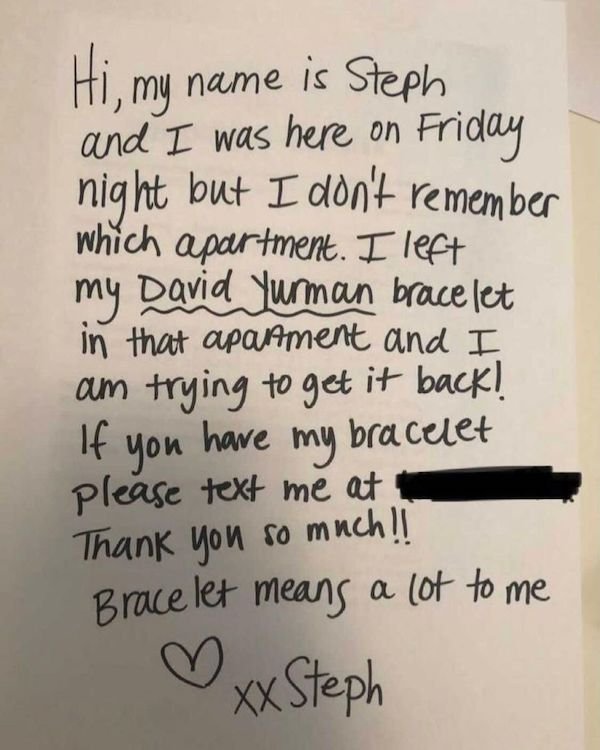 Hi, my name is Steph
and I was here on Friday
night but I don't remember
which apartment. I left
my David Yurman bracelet
in that apartment and I
am trying to get it back!
If you have my bracelet
please text me at
Thank you so much!!
Bracelet means a lot to me
xx Steph